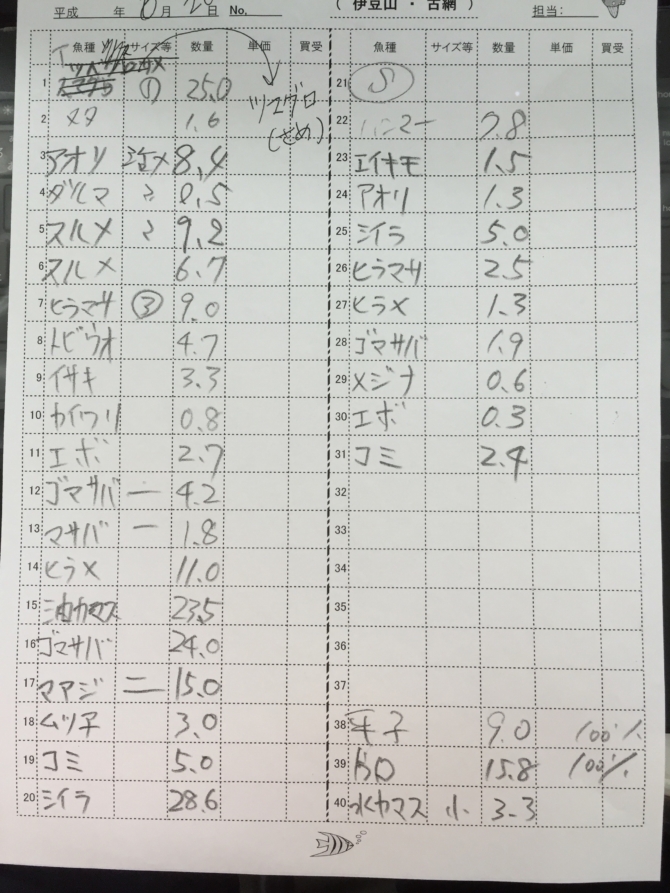 平成 年 6月 20日 No. ( 伊豆山 ・ 古網 ) 担当:
魚種 サイズ等 数量 単価 買受
1 ① 25.0
ツマグロ
(さめ)
2 メダ 1.6
3 アオリ 活〆 8.4
4 ダルマ 〃 0.5
5 スルメ 〃 9.2
6 スルメ 6.7
7 ヒラマサ ③ 9.0
8 トビウオ 4.7
9 イサキ 3.3
10 カイワリ 0.8
11 エボ 2.7
12 ゴマサバ 一 4.2
13 マサバ 一 1.8
14 ヒラメ 11.0
15 油カマス 23.5
16 ゴマサバ 24.0
17 マアジ 二 15.0
18 ムツ子 3.0
19 コミ 5.0
20 シイラ 28.6
魚種 サイズ等 数量 単価 買受
21 S
22 .8
23 エイキモ 1.5
24 アオリ 1.3
25 シイラ 5.0
26 ヒラマサ 2.5
27 ヒラメ 1.3
28 ゴマサバ 1.9
29 メジナ 0.6
30 エボ 0.3
31 コミ 2.4
32
33
34
35
36
37
38 子 9.0 100%
39 15.8 100%
40 水カマス 小 3.3